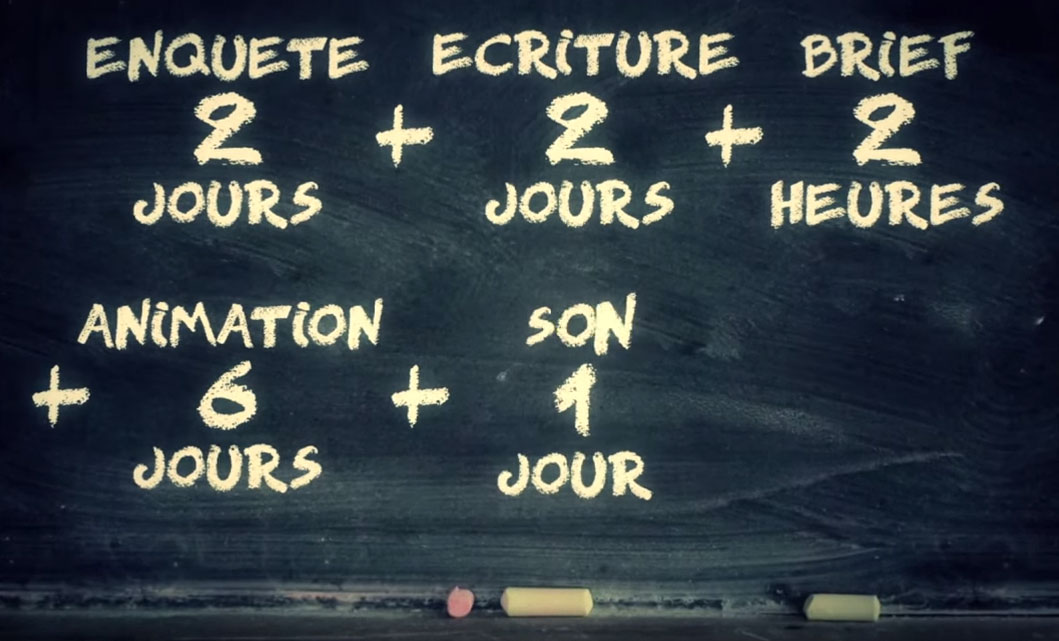 ENQUETE ECRiTURE BRiEF
2 + 2 + 2
JOURS JOURS HEURES
ANiMATiON SON
+ 6 + 1
JOURS JOUR